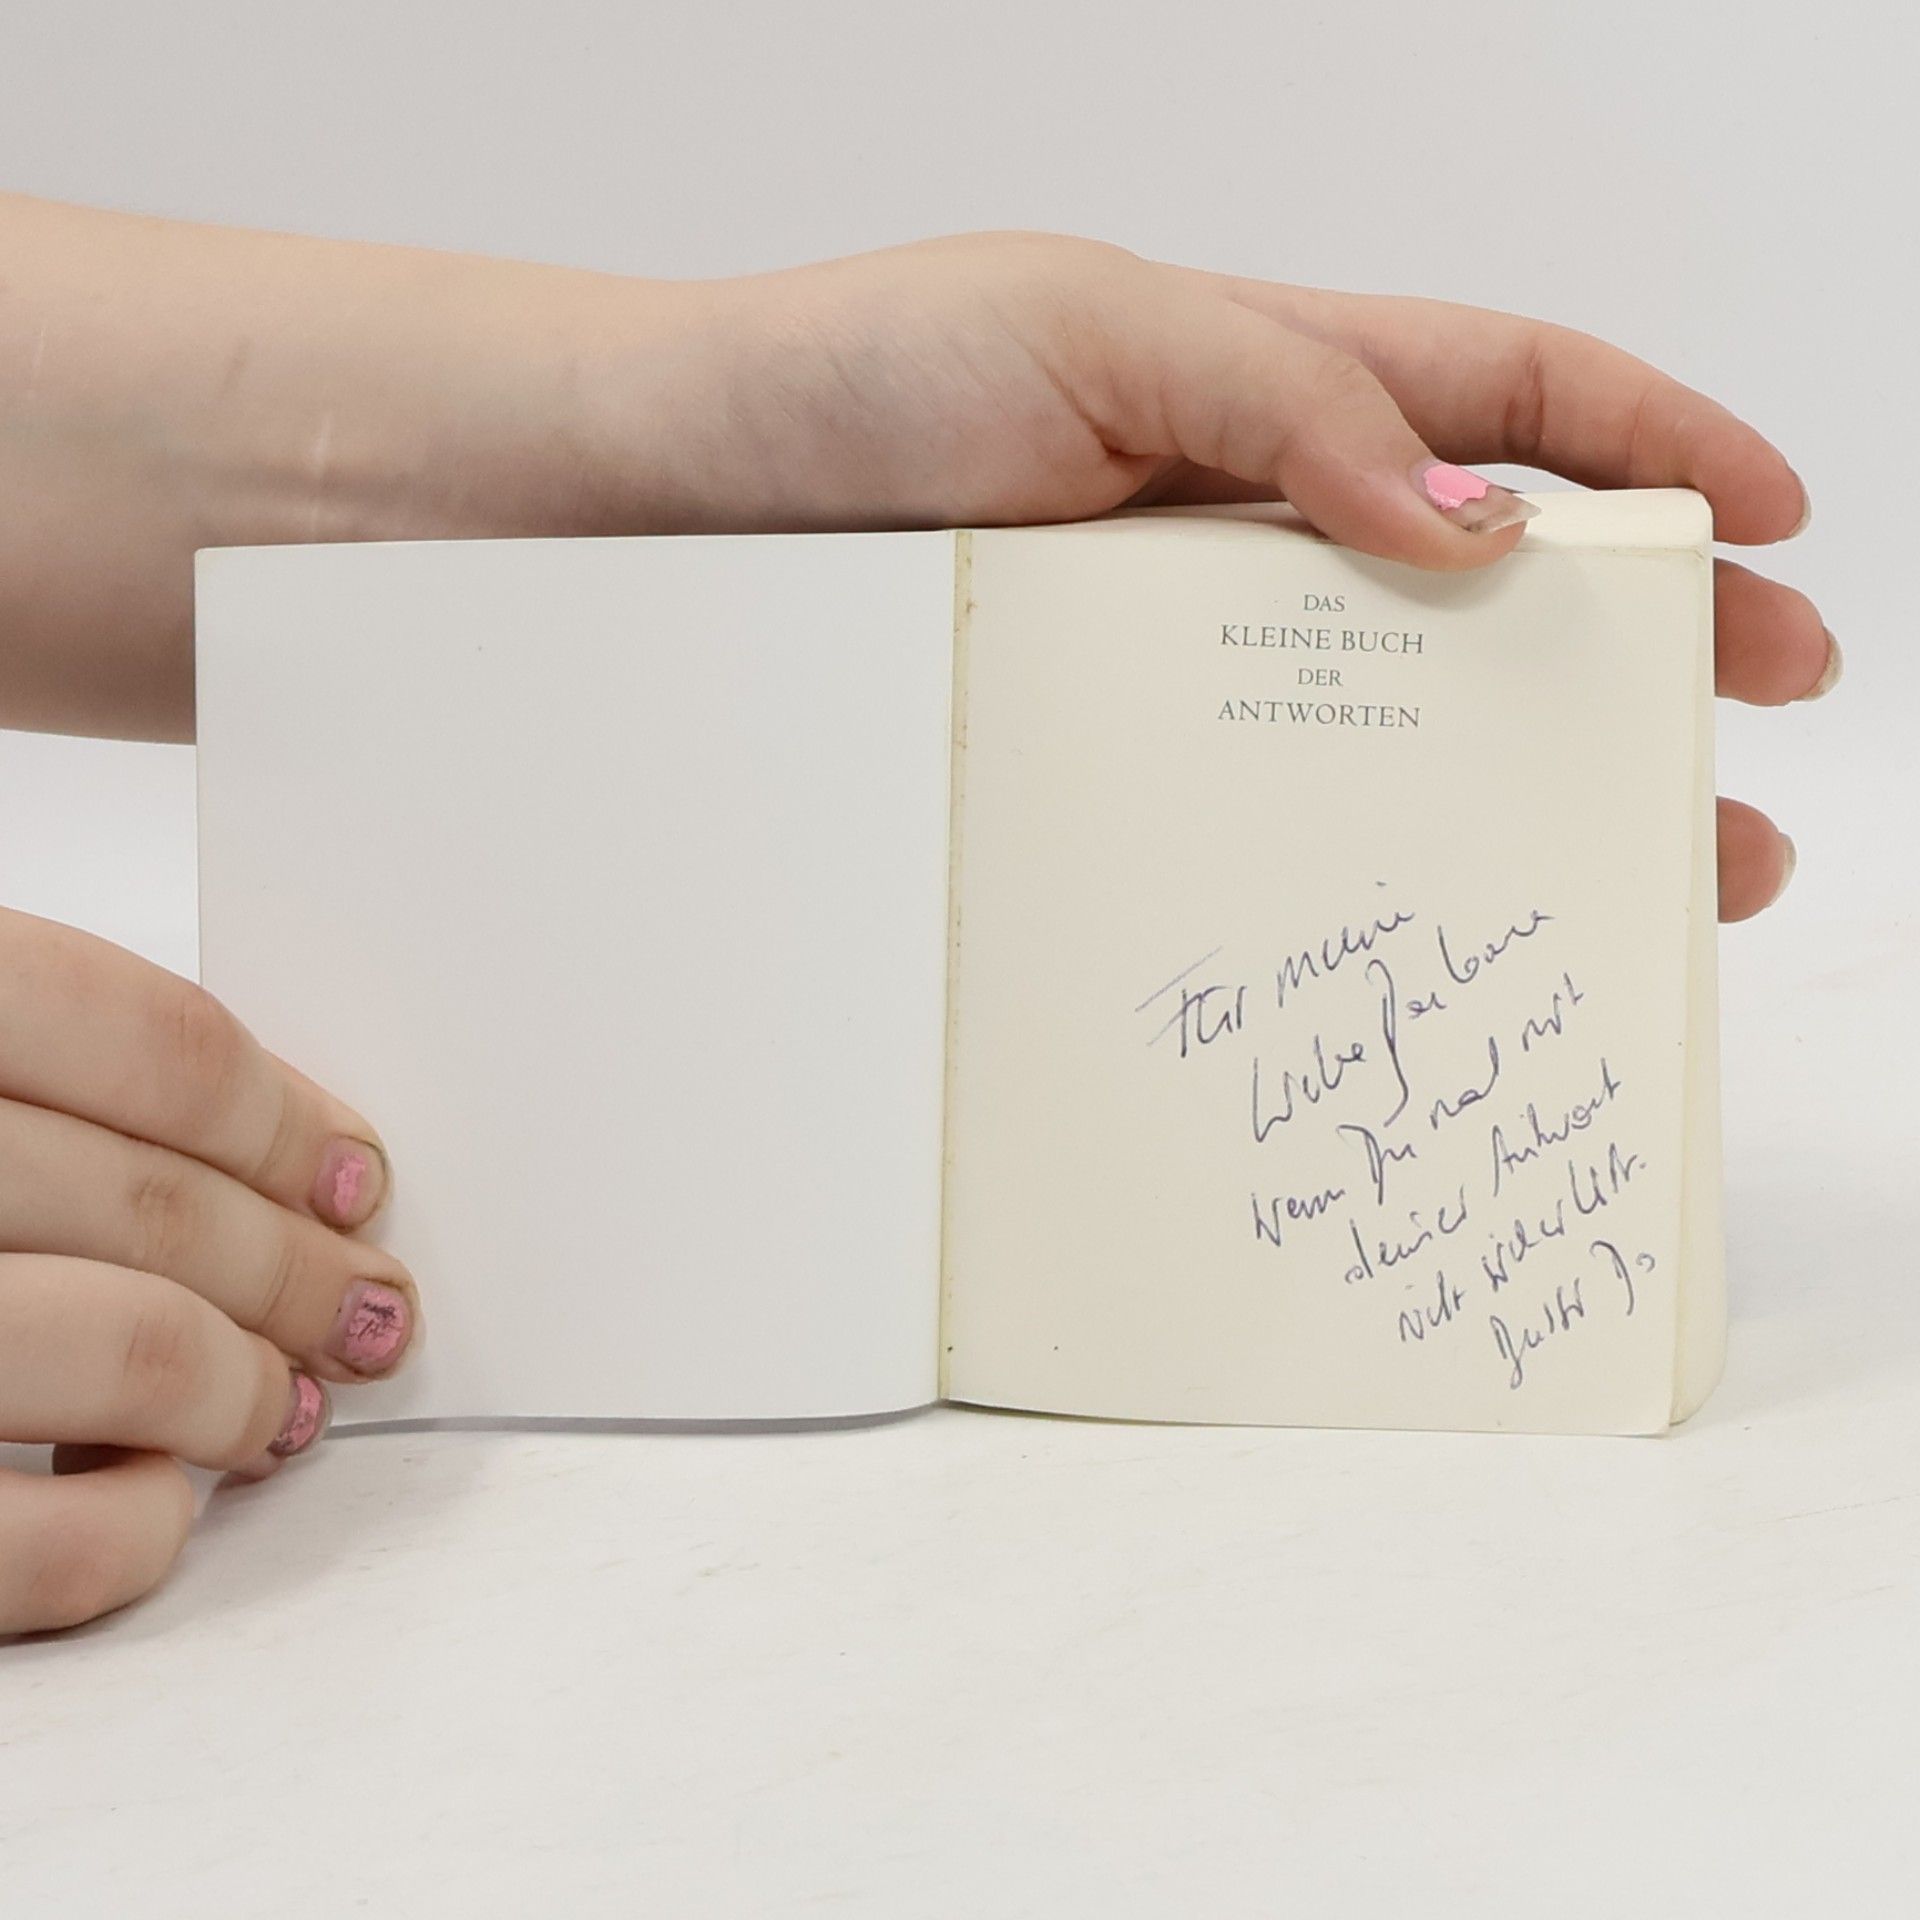 DAS
KLEINE BUCH
DER
ANTWORTEN
Für meine
liebe Barbara
wenn Du mal mit
deiner Antwort
nicht weiter